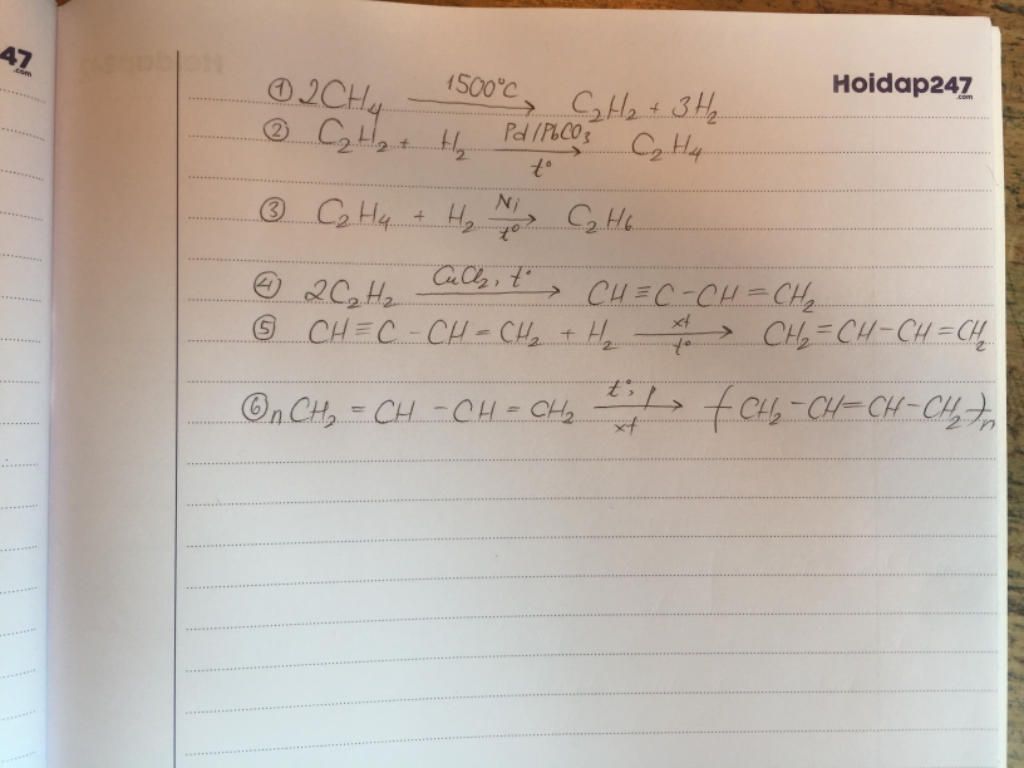 47
.com
Hoidap247
.com
① 2CH₄ —1500°C→ C₂H₂ + 3H₂
② C₂H₂ + H₂ —Pd/PbCO₃, t°→ C₂H₄
③ C₂H₄ + H₂ —Ni, t°→ C₂H₆
④ 2C₂H₂ —CuCl₂, t°→ CH≡C-CH=CH₂
⑤ CH≡C-CH=CH₂ + H₂ —xt, t°→ CH₂=CH-CH=CH₂
⑥ nCH₂=CH-CH=CH₂ —t°, p, xt→ (CH₂-CH=CH-CH₂)ₙ